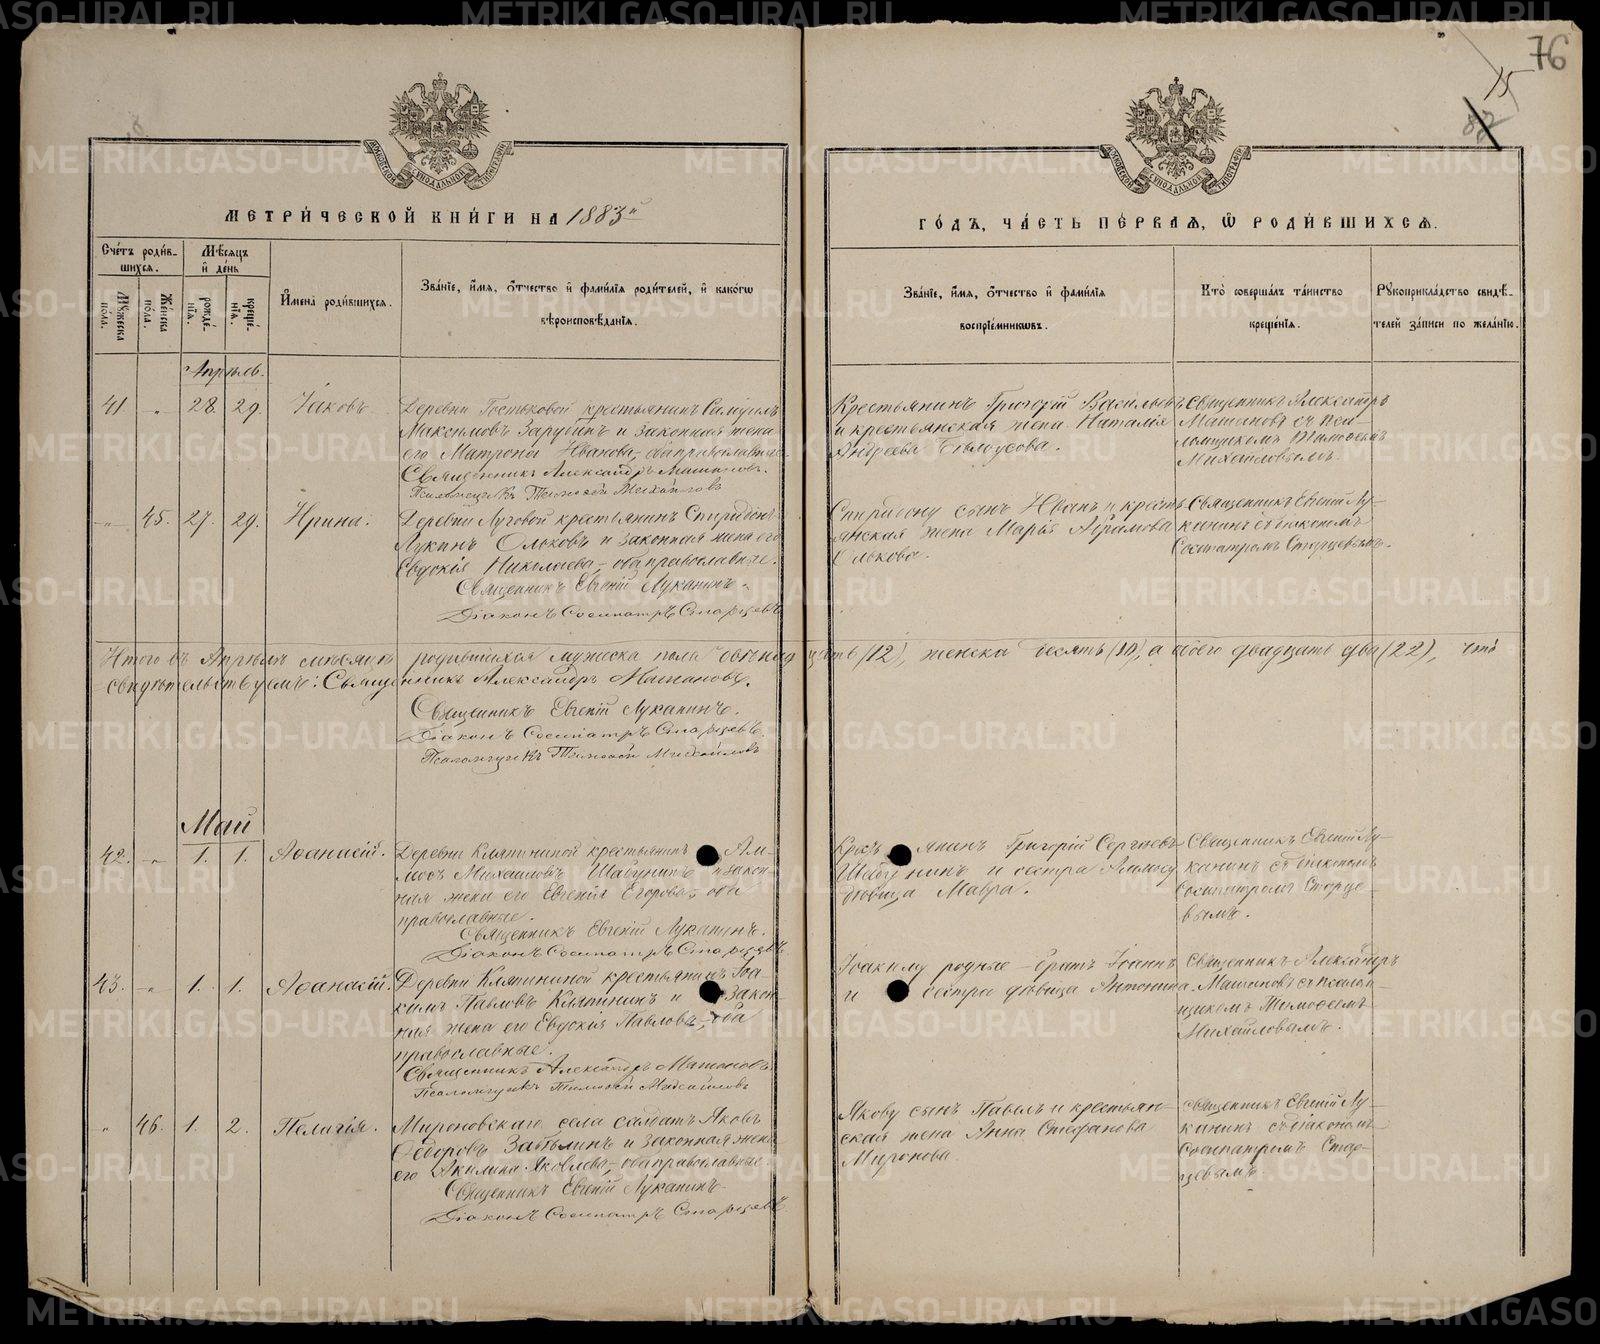 76
15
88
МОСКОВСКОЙ СѴНОДАЛЬНОЙ ТИПОГРАФІИ
МОСКОВСКОЙ СѴНОДАЛЬНОЙ ТИПОГРАФІИ
МЕТРИ́ЧЕСКОЙ КНИ́ГИ НА 1883й
ГО́ДЪ, ЧА́СТЬ ПЕ́РВАѦ, Ѿ РОДИ́ВШИХСѦ.
Сче́тъ роди́в-
шихся.
Мѣ́сяцъ
и҆ де́нь
Мꙋжеска
по́ла.
Же́нска
по́ла.
рожде́-
нїѧ.
креще́-
нїѧ.
И҆мена̀ роди́вшихсѧ.
Зва́нїе, и҆́мѧ, ѻ҆́тчество и҆ фами́лїѧ роди́телей, и҆ како́гѡ
вѣроисповѣ́данїѧ.
Зва́нїе, и҆́мѧ, ѻ҆́тчество и҆ фами́лїѧ
воспрїе́мникѡвъ.
Кто̀ соверша́лъ та́инство
креще́нїѧ.
Рꙋкоприкла́дство свидѣ́-
телей за́писи по жела́нїю.
Апрѣль.
41 „ 28. 29. Іаковъ
Деревни Гостьковой крестьянинъ Самуилъ
Максимовъ Зарубинъ и законная жена
его Матрона Иванова, оба православные.
Священникъ Александръ Машановъ.
Псаломщикъ Тимоѳей Михайловъ
Крестьянинъ Григорій Васильевъ
и крестьянская жена Наталія
Андреева Бѣлоусова.
Священникъ Александръ
Машановъ съ пса-
ломщикомъ Тимоѳеемъ
Михайловымъ.
„ 45. 27. 29. Ирина.
Деревни Луговой крестьянинъ Спиридонъ
Лукинъ Ольковъ и законная жена его
Евдокія Николаева, оба православные.
Священникъ Евгеній Луканинъ.
Діаконъ Сосипатръ Старцевъ
Спиридону сынъ Иванъ и кресть-
янская жена Марія Абрамова
Олькова.
Священникъ Евгеній Лу-
канинъ съ діакономъ
Сосипатромъ Старцевымъ.
Итого въ Апрѣлѣ мѣсяцѣ родившихся мужеска пола двѣнадцать (12), женска десять (10), а обоего двадцать два (22), что
свидѣтельствуемъ: Священникъ Александръ Машановъ.
Священникъ Евгеній Луканинъ.
Діаконъ Сосипатръ Старцевъ.
Псаломщикъ Тимоѳей Михайловъ
Май
42. „ 1. 1. Аѳанасій.
Деревни Кляпиной крестьянинъ Ам-
мосъ Михаиловъ Шабунинъ и закон-
ная жена его Евгенія Егорова, оба
православные.
Священникъ Евгеній Луканинъ.
Діаконъ Сосипатръ Старцевъ
Крестьянинъ Григорій Сергѣевъ
Шабунинъ и сестра Аммосу
дѣвица Мавра.
Священникъ Евгеній Лу-
канинъ съ діакономъ
Сосипатромъ Старце-
вымъ.
43. „ 1. 1. Аѳанасій.
Деревни Кляпиной крестьянинъ Іоа-
кимъ Павловъ Кляпининъ и закон-
ная жена его Евдокія Павлова, оба
православные.
Священникъ Александръ Машановъ
Псаломщикъ Тимоѳей Михайловъ
Іоакиму родные братъ Іоаннъ
и сестра дѣвица Антонина.
Священникъ Александръ
Машановъ съ псалом-
щикомъ Тимоѳеемъ
Михайловымъ.
„ 46. 1. 2. Пелагія.
Мироновскаго села солдатъ Яковъ
Ѳедоровъ и законная жена
его Акилина Яковлева, оба православные.
Священникъ Евгеній Луканинъ.
Діаконъ Сосипатръ Старцевъ
Якову сынъ Павелъ и крестьян-
ская жена Анна Стефанова
Миронова.
Священникъ Евгеній Лу-
канинъ съ діакономъ
Сосипатромъ Стар-
цевымъ.
METRIKI.GASO-URAL.RU